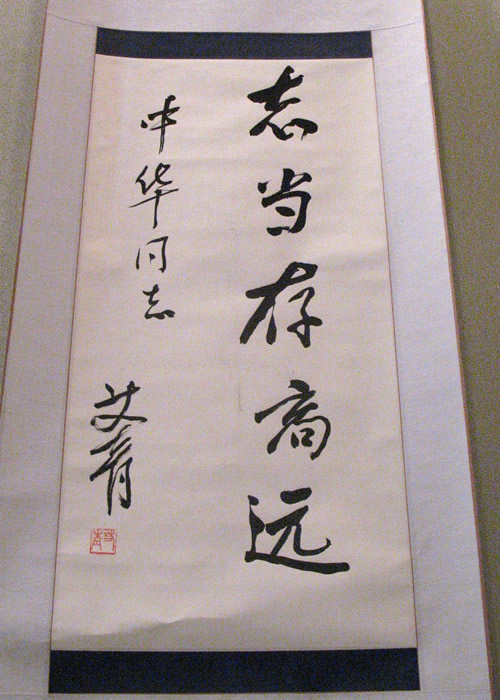 志当存高远
中华同志
艾青